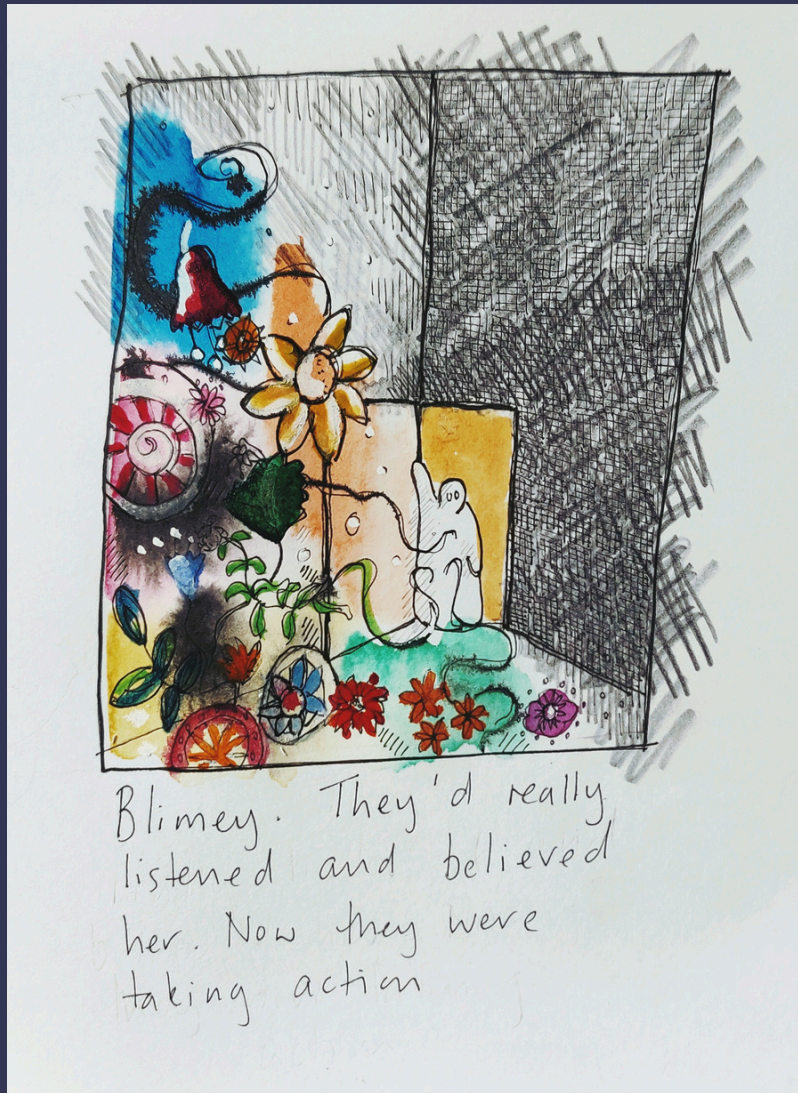 Blimey. They'd really
listened and believed
her. Now they were
taking action